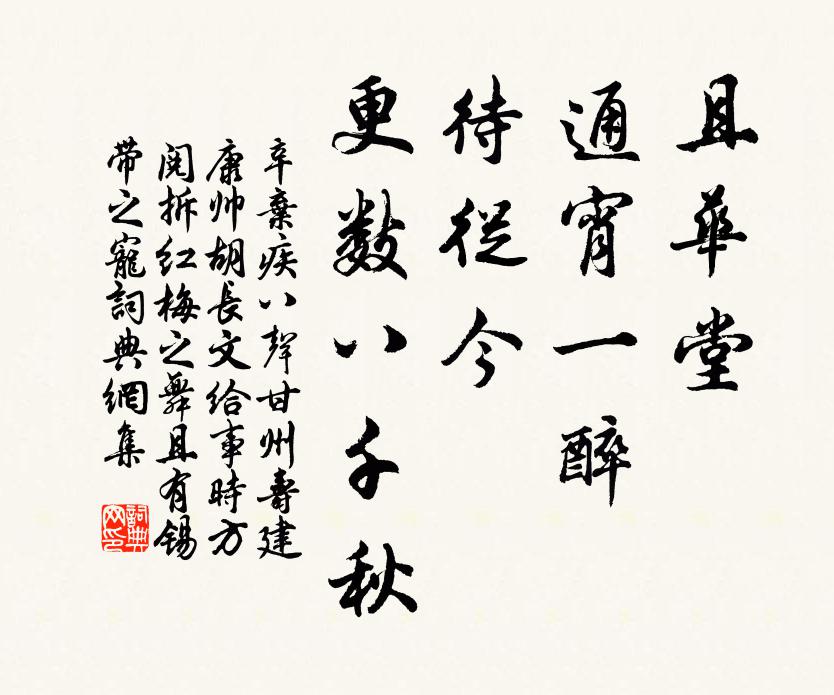 且華堂
通宵一醉
待從今
更數八千秋
辛棄疾八聲甘州壽建
康帅胡長文給事時方
閱拆红梅之舞且有锡
带之寵詞典網集
詞典网印